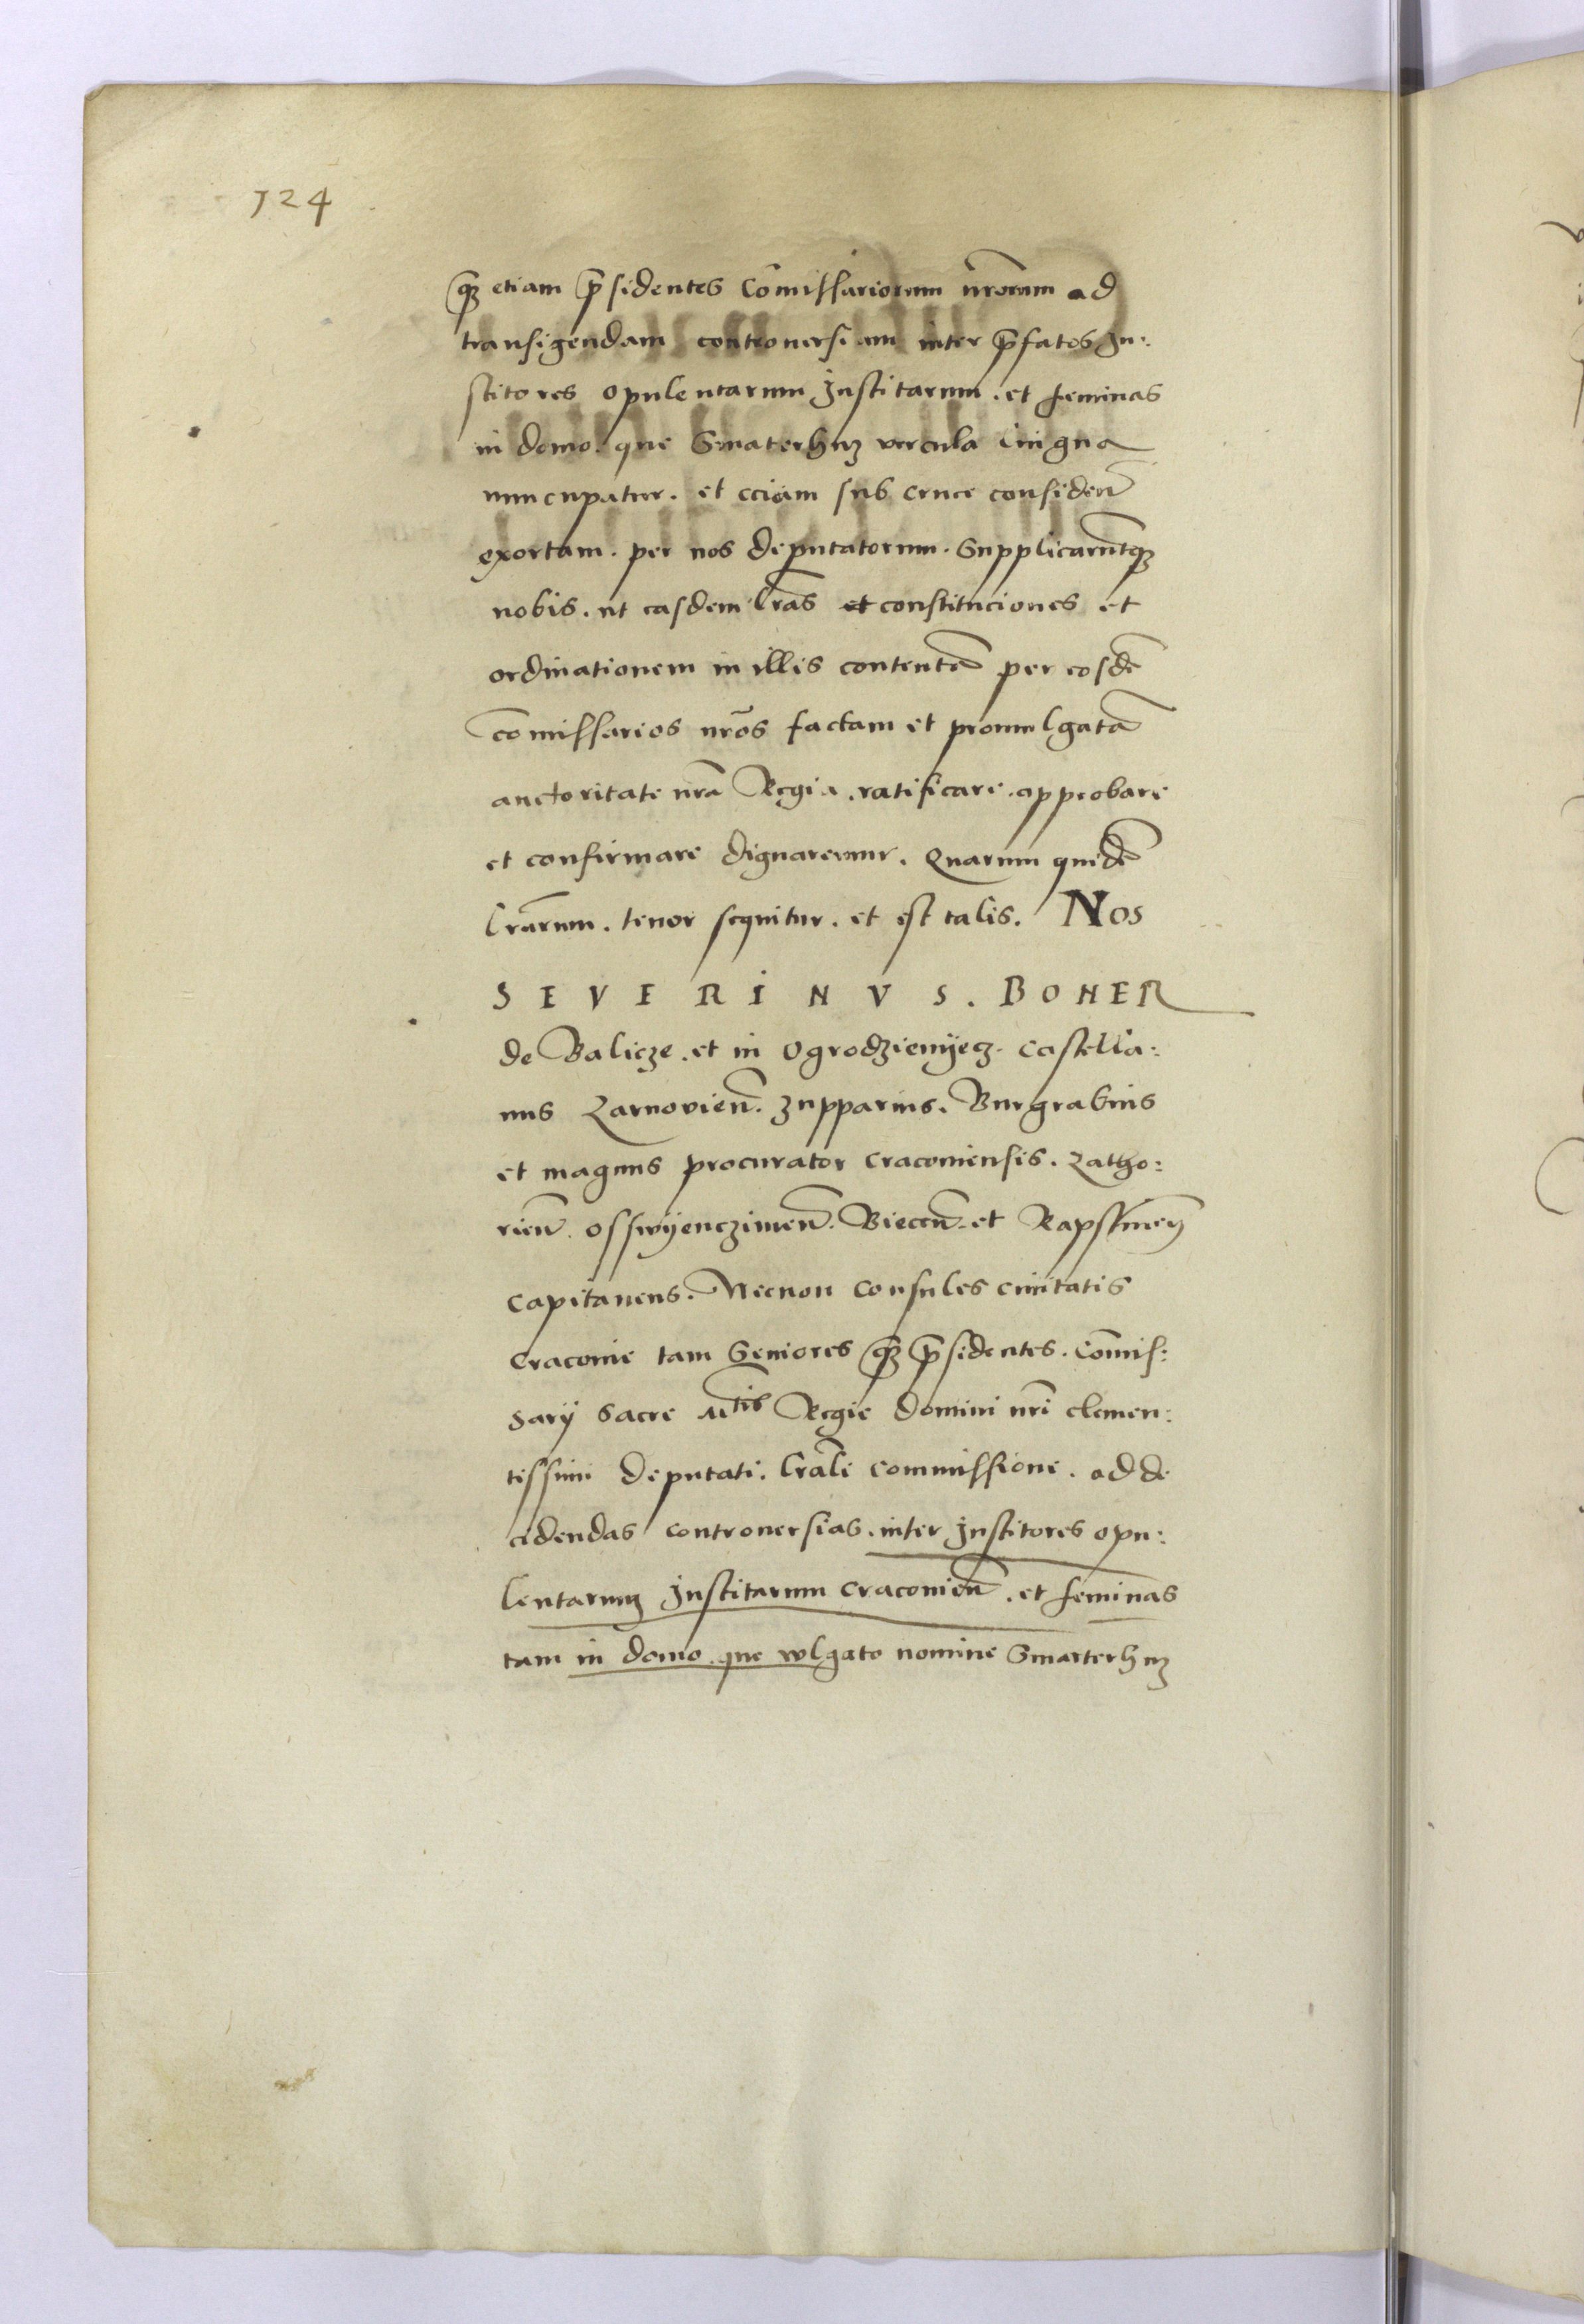 124
qꝫ etiam p̄sidentes Com̄issariorum nr̄orum ad
transigendam controuersiam inter p̄fatos In:
stitores opulentarum Institarum. et feminas
in domo. que Smaterhuz vercula lingna
nuncupatur. et eciam sub cruce considen̄
exortam. per nos deputatorum. Supplicarūtqꝫ
nobis. ut easdem lr̄as et constituciones et
ordinationem in illis contentā per eosdē
com̄issarios nr̄os factam et promulgatā
auctoritate nr̄a Regia. ratificare. approbare
et confirmare dignaremur. Quarum quidē
lr̄arum. tenor sequitur. et est talis. Nos
SEVERINVS. BONER
de Balicze. et in Ogrodzienijecz. Castella:
nus Zarnovien̄. zupparius. Burgrabius
et magnus procurator Cracouiensis. Zatho:
rien̄. Osswijenczimen̄. Biecen̄. et Rapstinen̄
Capitaneus. Necnon Consules ciuitatis
Cracouie tam Seniores qꝫ p̄sidentes. Com̄is:
sarij Sacre Mtis Regie domini nr̄i clemen:
tissimi deputati. lr̄ali commissione. ad de
cidendas controuersias. inter Institores opu:
lentarum Institarum Cracouien̄. et feminas
tam in domo. que wlgato nomine Smarterhuz